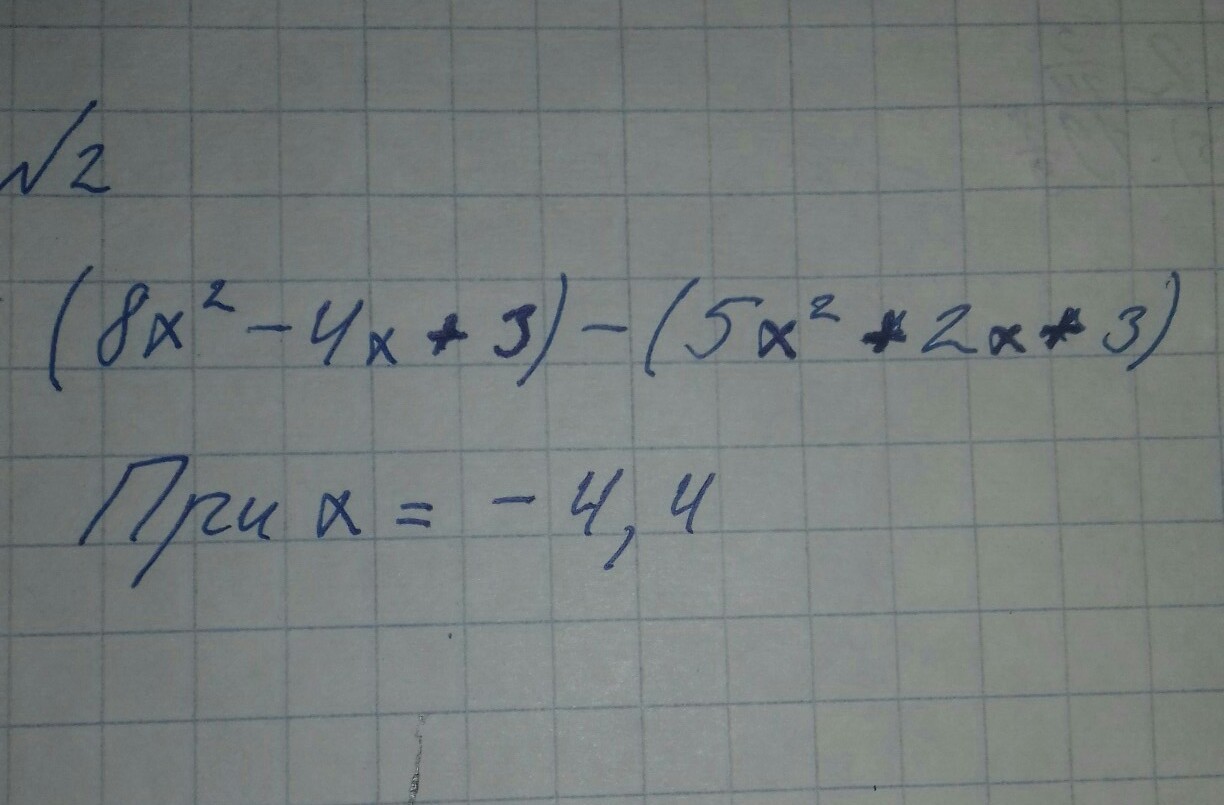 №2
(8x² - 4x + 3) - (5x² + 2x + 3)
При x = - 4,4